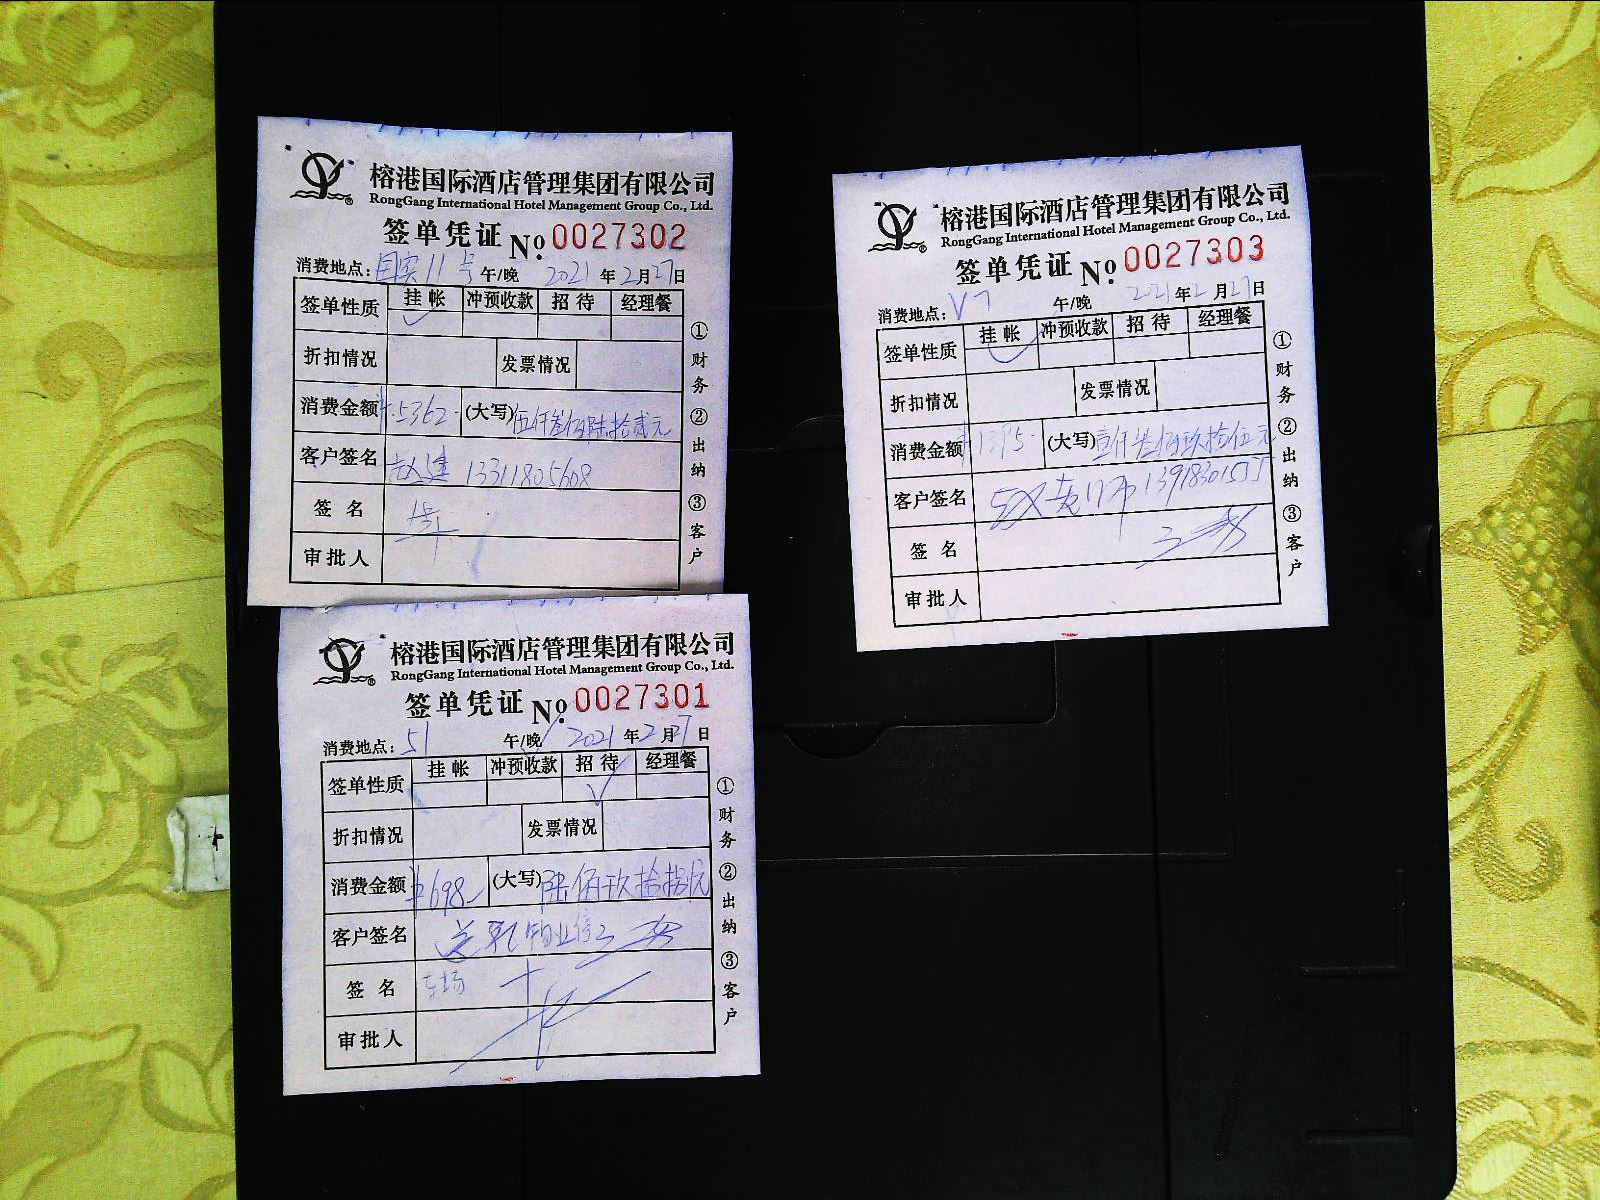 榕港国际酒店管理集团有限公司
RongGang International Hotel Management Group Co., Ltd.
签单凭证 No. 0027302
消费地点: 国宾11号 午/晚 2021年2月27日
签单性质 挂帐 冲预收款 招待 经理餐
折扣情况 发票情况
消费金额 ¥5362- (大写) 伍仟叁佰陆拾贰元
客户签名 13311805608
签名
审批人
①财务 ②出纳 ③客户
榕港国际酒店管理集团有限公司
RongGang International Hotel Management Group Co., Ltd.
签单凭证 No. 0027303
消费地点: V7 午/晚 2021年2月27日
签单性质 挂帐 冲预收款 招待 经理餐
折扣情况 发票情况
消费金额 ¥1395- (大写) 壹仟叁佰玖拾伍元
客户签名
签名
审批人
①财务 ②出纳 ③客户
榕港国际酒店管理集团有限公司
RongGang International Hotel Management Group Co., Ltd.
签单凭证 No. 0027301
消费地点: 51 午/晚 2021年2月27日
签单性质 挂帐 冲预收款 招待 经理餐
折扣情况 发票情况
消费金额 ¥698- (大写) 陆佰玖拾捌元
客户签名 物业停
签名 车场
审批人
①财务 ②出纳 ③客户